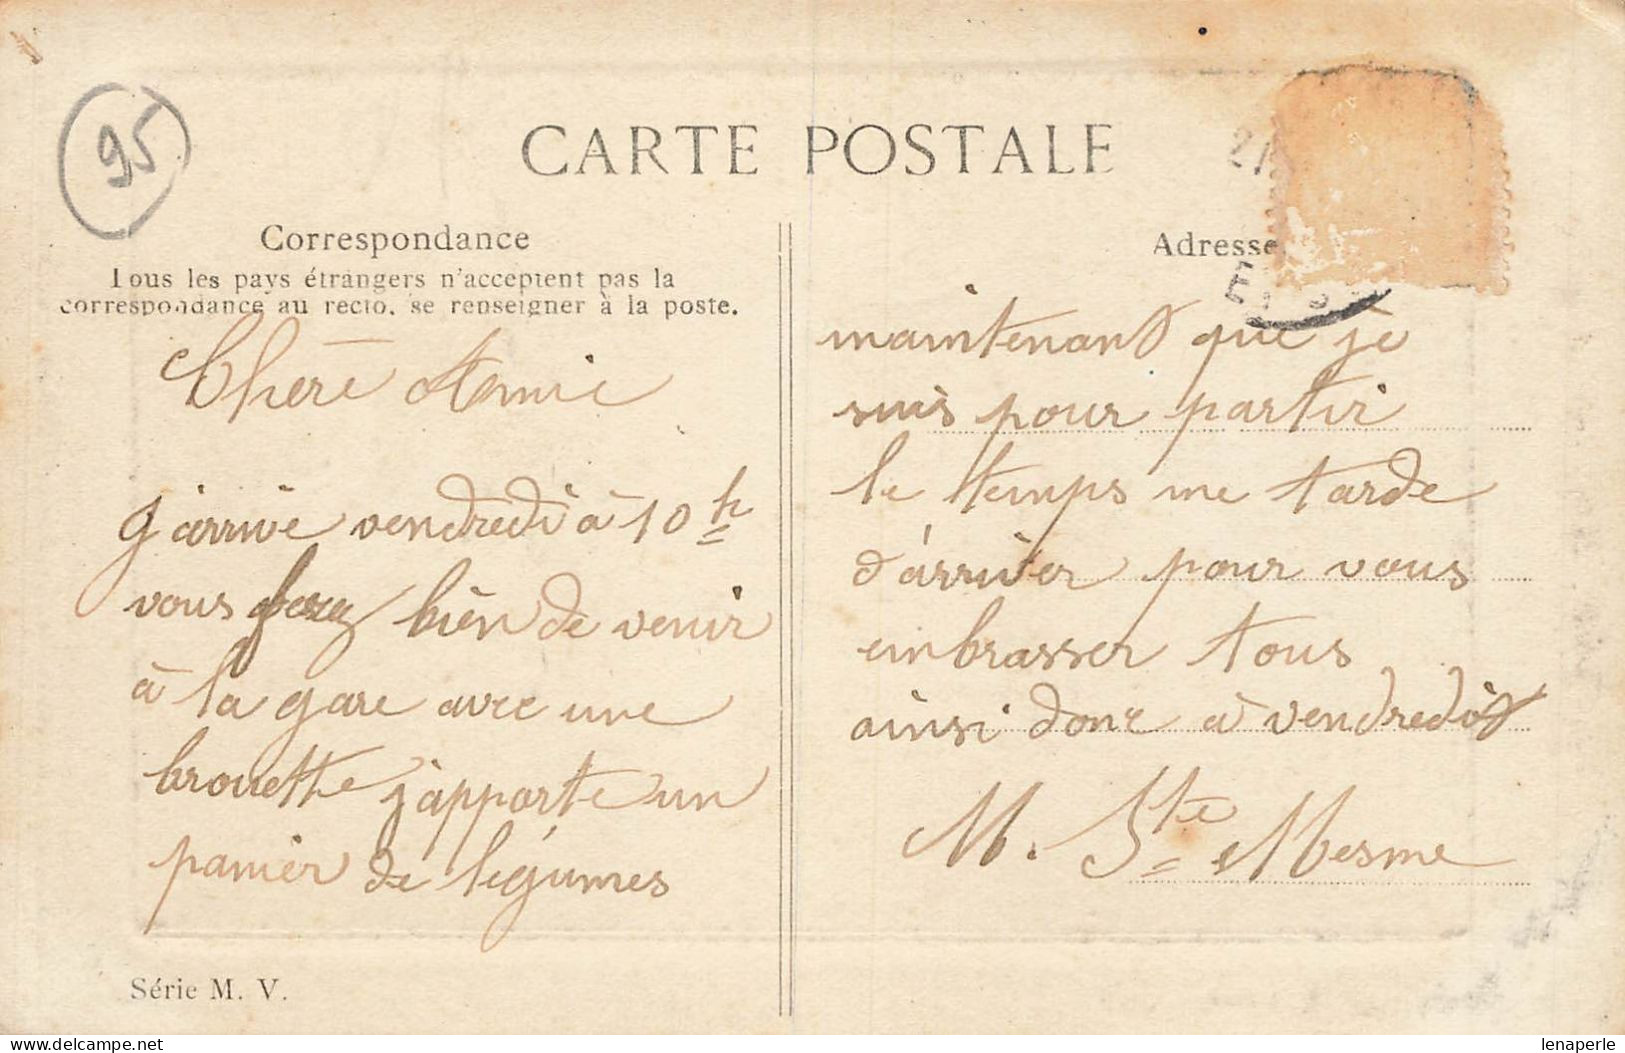 95
CARTE POSTALE
Correspondance
Tous les pays étrangers n'acceptent pas la
correspondance au recto, se renseigner à la poste.
Chère Amie
J'arrive vendredi à 10h
vous ferez bien de venir
à la gare avec une
brouette j'apporte un
panier de légumes
Série M. V.
Adresse
maintenant que je
suis pour partir
le temps me tarde
d'arriver pour vous
embrasser tous
ainsi donc à vendredi
M. Ste Mesme
delcampe.net
lenaperle